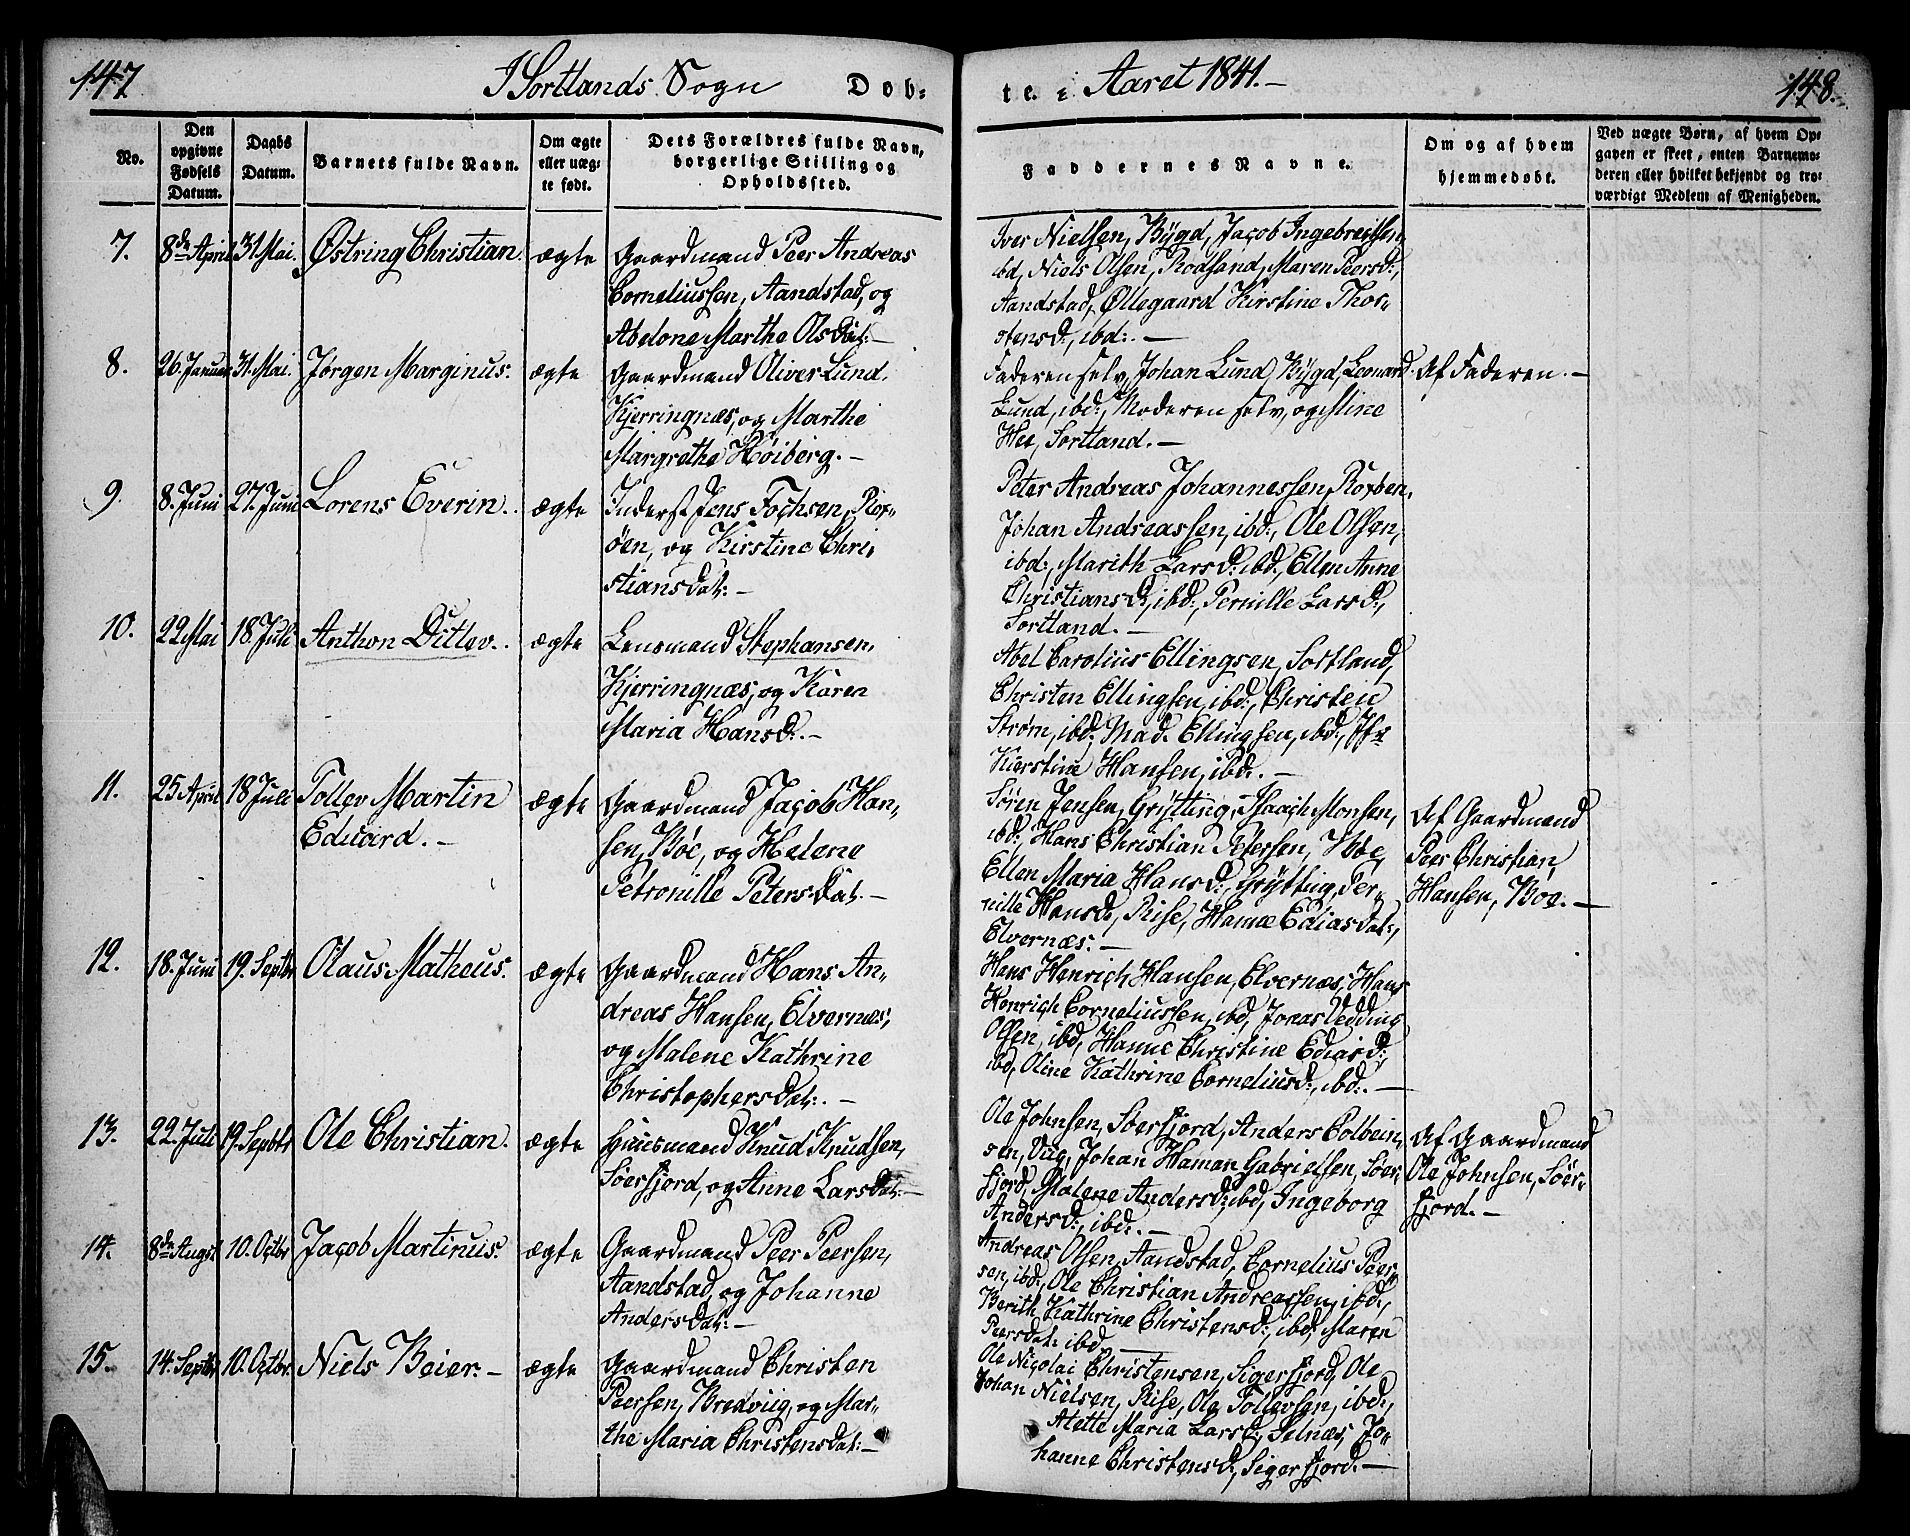 147
I Sortlands Sogn Døb-
te. i Aaret 1841.-
148.
No.
Den opgivne Fødsels Datum.
Daabs Datum.
Barnets fulde Navn.
Om ægte eller uæg- te født.
Dets Forældres fulde Navn, borgerlige Stilling og Opholdssted.
Faddernes Navne.
Om og af hvem hjemmedøbt.
Ved uægte Børn, af hvem Op- gaven er skeet, enten Barnemo- deren eller hvilket bekjendt og tro- værdigt Medlem af Menigheden.
7. 8de April 31. Mai. Østring Christian. ægte
Gaardmand Peer Andreas
Corneliussen, Aandstad, og
Abelone Marthe Olsdat:-
Iver Nielsen, Bÿgd, Jacob Ingebreitsen,
ibd, Niels Olsen, Rodsand, Maren Peersd:,
Aandstad, Øllegaard Kirstine Thor-
stensd:, ibd:.-
8. 26. Januar 31. Mai. Jørgen Marginus. ægte
Gaardmand Oliver Lund,
Kjerringnæs, og Marthe
Margrethe Høiberg.-
Faderen selv, Johan Lund, Bÿgd, Leonard
Lund, ibd:, Moderen selv, og Mine
Hee, Sortland.-
Af Faderen.-
9. 8. Juni 27. Juni Lorens Everin. ægte
Inderst Jens Fochsen, Rox-
øen, og Kirstine Chri-
stiansdat:-
Peter Andreas Johannessen, Roxøen,
Johan Andreassen, ibd:, Ole Olsen,
ibd:, Marith Larsd: ibd:, Ellen Anne
Christiansd:, ibd:, Pernille Larsd:,
Sortland.-
10. 22 Mai 18. Juli Anthon Ditlev. ægte
Lensmand Stephansen,
Kjerringnæs, og Karen
Maria Hansd:.-
Abel Carolius Ellingsen, Sortland,
Christen Ellingsen, ibd:, Christen
Strøm, ibd:, Mad. Ellingsen, ibd:, Jfr
Kierstine Hansen, ibd:.-
11. 25 April 18 Juli Tollev Martin
Eduard.- ægte
Gaardmand Jacob Han-
sen, Bøe, og Helene
Petronille Petersdat.-
Søren Jensen, Grÿtting, Isaach Monsen,
ibd:, Hans Christian Petersen, Bøe,
Ellen Maria Hansd:, Grÿtting, Per-
nille Hansd:, Rise, Hanne Ediasdat:,
Elvernæs:-
Af Gaardmand
Peer Christian
Hansen, Boe.-
12. 18. Juni 19. Septbr Olaus Matheus. ægte
Gaardmand Hans An-
dreas Hansen, Elvernæs,
og Malene Kathrine
Christophersdat:.-
Hans Henrich Hansen, Elvernæs, Hans
Henrich Corneliussen, ibd, Jonas Vedding
Olsen, ibd, Hanne Christine Ediasd:,
ibd, Oline Kathrine Corneliusd:, ibd:.-
13. 22. Juli 19. Septbr Ole Christian. ægte
Huusmand Knud Knudsen,
Søerfjord, og Anne Larsdat:-
Ole Johnsen, Søerfjord, Anders Colbein-
sen, Vug, Johan Haman Gabrielsen, Søer-
fjord, Malene Andersd: ibd, Ingeborg
Andersd:, ibd:.-
Af Gaardmand
Ole Johnsen, Søer-
fjord.-
14. 8de Augst 10. Octbr Jacob Martinus. ægte
Gaardmand Peer Peersen,
Aandstad, og Johanne
Andersdat:-
Andreas Olsen, Aandstad, Cornelius Peer-
sen, ibd:, Ole Christian Andreassen, ibd:,
Berith Kathrine Christensd:, ibd, Maren
Peersdat: ibd.-
15. 14. Septbr 10. Octbr. Niels Beier.- ægte
Gaardmand Christen
Peersen, Bredviig, og Mar-
the Maria Christensdat:-
Ole Nicolai Christensen, Sigerfjord, Ole
Johan Nielsen, Rise, Ole Tollevsen, ibd:,
Atette Maria Larsd:, Selnæs, Jo-
hanne Christensd:, Sigerfjord.-